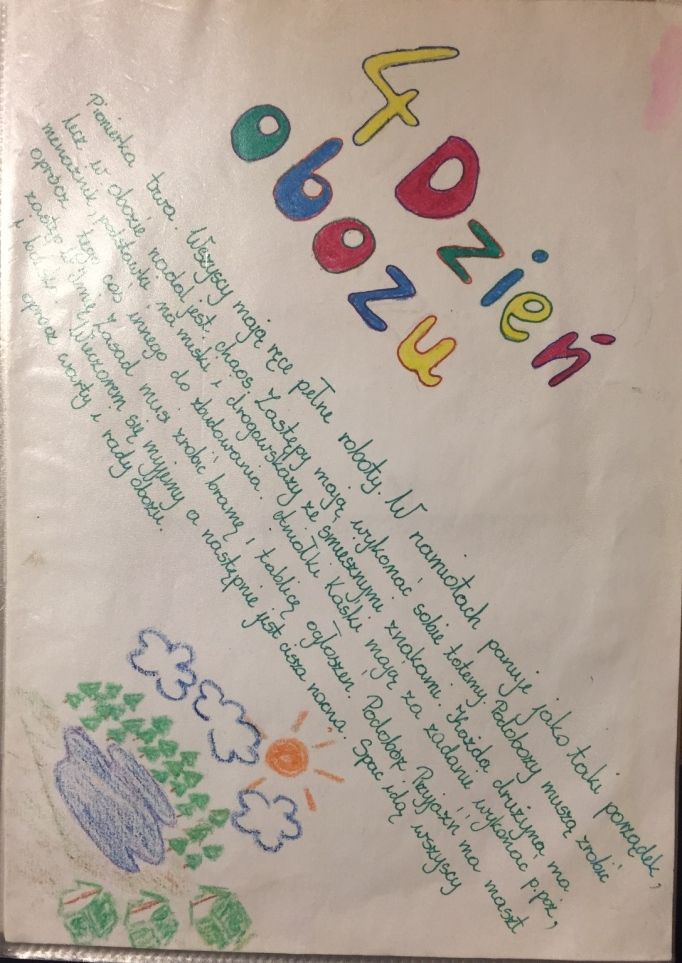 4 Dzień
obozu
Pionierka trwa. Wszyscy mają ręce pełne roboty. W namiotach panuje jako taki porządek,
lecz w obozie nadal jest chaos. Zastępy mają wykonać sobie totemy. Podobozy muszą zrobić
menażnik, podstawki na miski i drogowskazy ze śmiesznymi znakami. Każda drużyna ma
oprócz tego coś innego do zbudowania. Aniołki Kaśki mają za zadanie wykonać p.poż,
W Imię Zasad musi zrobić bramę i tablicę ogłoszeń. Podobóz Przyjaźń ma maszt
i Wieczorem się myjemy a następnie jest cisza nocna. Spać idą wszyscy
oprócz warty i rady obozu.